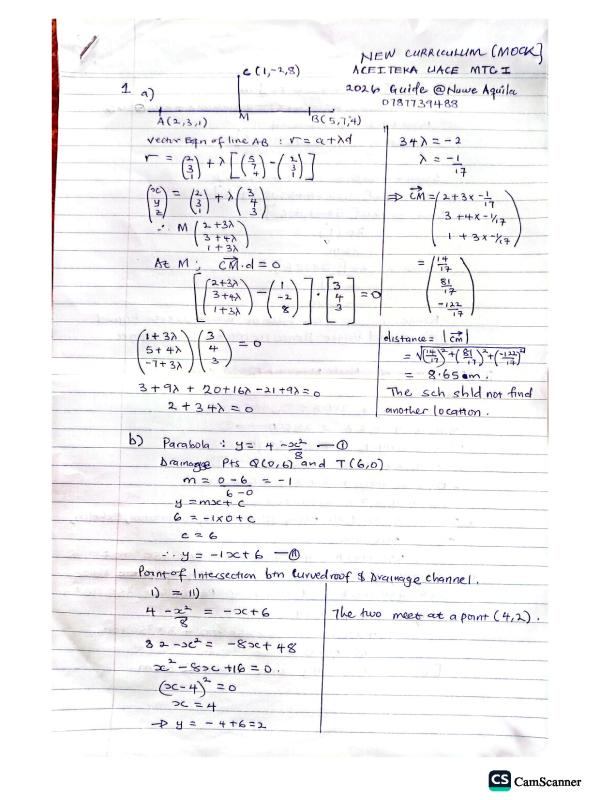 NEW CURRICULUM [MOCK]
ACEITEKA UACE MTC I
2026 Guide @Nuwe Aquila
0787739488
1 a)
C(1,-2,8)
A(2,3,1) M B(5,7,4)
Vector Eqn of line AB : r = a+λd
r = (2 3 1) + λ[(5 7 4) - (2 3 1)]
(x y z) = (2 3 1) + λ(3 4 3)
∴ M (2+3λ 3+4λ 1+3λ)
At M; CM·d = 0
[(2+3λ 3+4λ 1+3λ) - (1 -2 8)] · [3 4 3] = 0
(1+3λ 5+4λ -7+3λ)(3 4 3) = 0
3+9λ + 20+16λ -21+9λ = 0
2+34λ = 0
34λ = -2
λ = -1/17
⇒ CM = (2+3x-1/17 3+4x-1/17 1+3x-1/17)
= (14/17 81/17 -122/17)
distance = |CM|
= √(14/17)²+(81/17)²+(-122/17)²
= 8.65cm.
The sch shld not find
another location.
b) Parabola : y = 4 - x²/8 — (I)
Drainage Pts Q(0,6) and T(6,0)
m = 0-6/6-0 = -1
y = mx+c
6 = -1x0+c
c = 6
∴ y = -1x+6 — (II)
Point of Intersection btn Curved roof & Drainage channel.
I) = II)
4 - x²/8 = -x+6
32 - x² = -8x+48
x² - 8x + 16 = 0.
(x-4)² = 0
x = 4
⇒ y = -4+6 = 2
The two meet at a point (4,2).
CS CamScanner